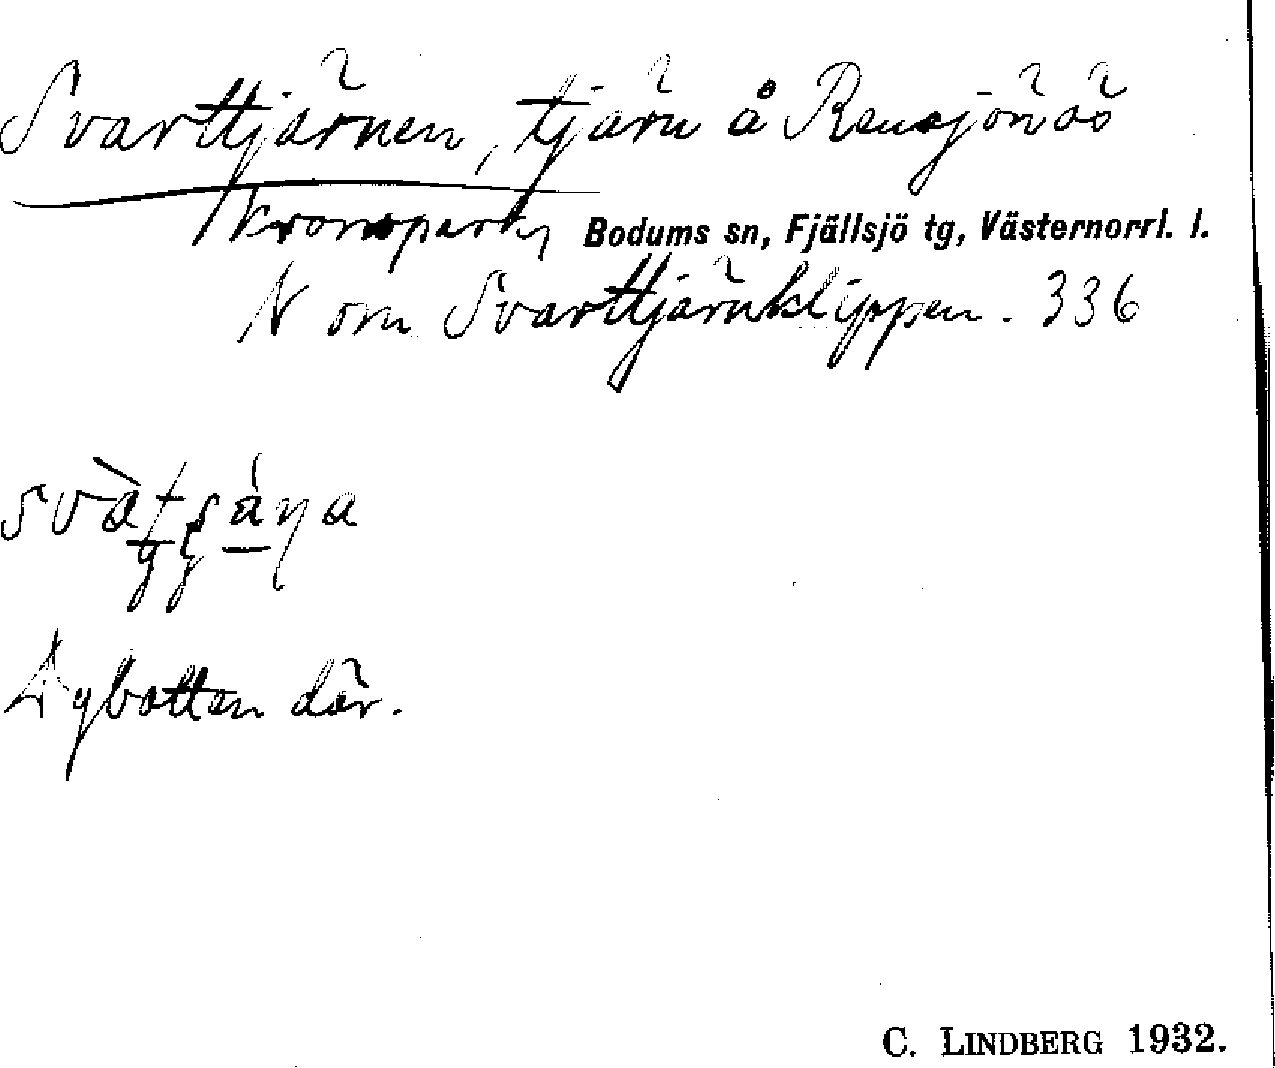 Svarttjärnen, tjärn å Rensjönäs
kronopark, Bodums sn, Fjällsjö tg, Västernorrl. l.
N om Svarttjärnklippen. 336
Dybotten där.
C. LINDBERG 1932.